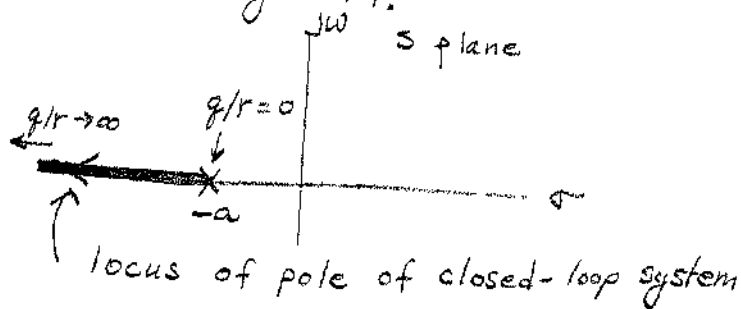 jω
S plane
q/r = 0
q/r → ∞
-a
σ
locus of pole of closed-loop system